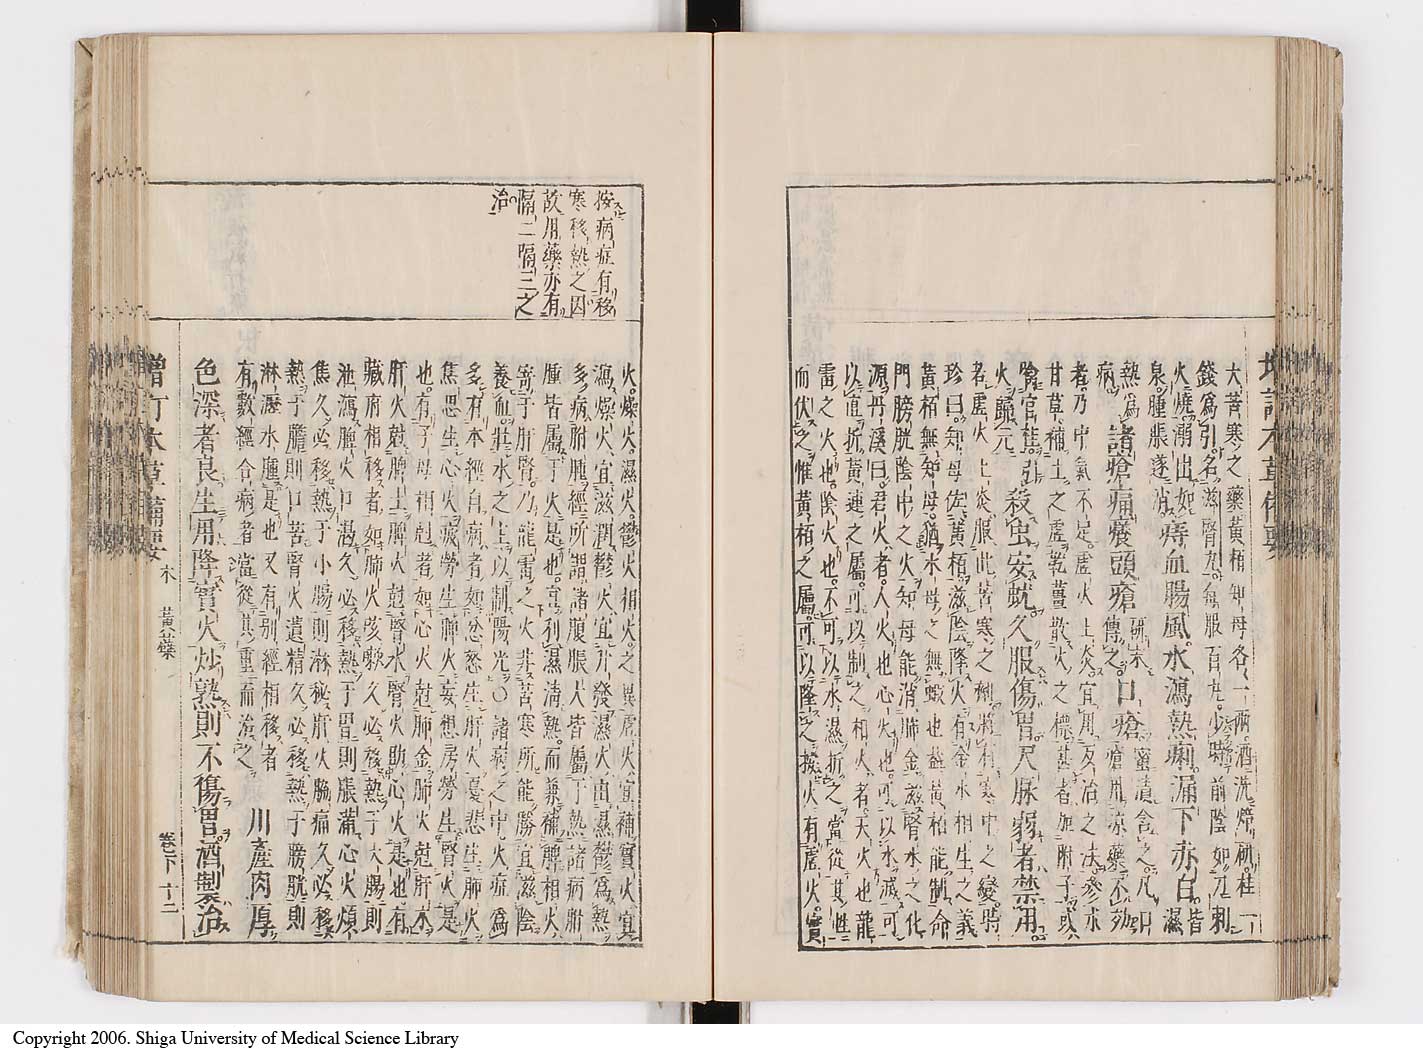 大苦寒之藥黃栢知母各一兩酒洗焙研桂一
錢爲引名滋腎丸每服百丸少時前陰如刀刺
火燒溺出如泉腫脹遂消痔血腸風水瀉熱痢漏下赤白皆濕
熱爲病諸瘡痛癢頭瘡研末傅之口瘡蜜漬含之凡口瘡用凉藥不効
者乃中氣不足虛火上炎宜用反治之法參朮
甘草補土之虛乾薑散火之標甚者加附子或
噙官桂引火歸元殺虫安蚘久服傷胃尺脉弱者禁用
若虛火上炎服此苦寒之劑將有寒中之變時
珍曰知母佐黃栢滋陰降火有金水相生之義
黃栢無知母猶水母之無蝦也益黃栢能制命
門膀胱陰中之火知母能消肺金滋腎水之化
源丹溪曰君火者人火也心火也可以水滅可
以直折黃連之屬可以制之相火者天火也龍
雷之火也陰火也不可以水濕折之當從其性
而伏之惟黃栢之屬可以降之按火有虛火實
火燥火濕火鬱火相火之異虛火宜補實火宜
瀉燥火宜滋潤鬱火宜升發濕火由濕鬱爲熱
多病胕腫經所謂諸腹脹大皆屬于熱諸病胕
腫皆屬于火是也宜利濕清熱而兼補脾相火
寄于肝腎乃龍雷之火非苦寒所能勝宜滋陰
養血壯水之主以制陽光○諸病之中火症爲
多有本經自病者如忿怒生肝火憂悲生肺火
焦思生心火疲勞生脾火妄想房勞生腎火是
也有子母相尅者如心火尅肺金肺火尅肝木
肝火尅脾土脾火尅腎水腎火助心火是也有
藏府相移者如肺火咳嗽久必移熱于大腸則
泄瀉脾火口渴久必移熱于胃則脹滿心火煩
焦久必移熱于小腸則淋秘肝火脇痛久必移
熱于膽則口苦腎火遺精久必移熱于膀胱則
淋瀝水腫是也又有别經相移者
有數經合病者當從其重而治之川產肉厚
色深者良生用降實火炒熟則不傷胃酒製治
按病症有移
寒移熱之因
故用藥亦有
隔二隔三之
治
增訂本草備要
木
黃蘗
卷下
十二
Copyright 2006. Shiga University of Medical Science Library